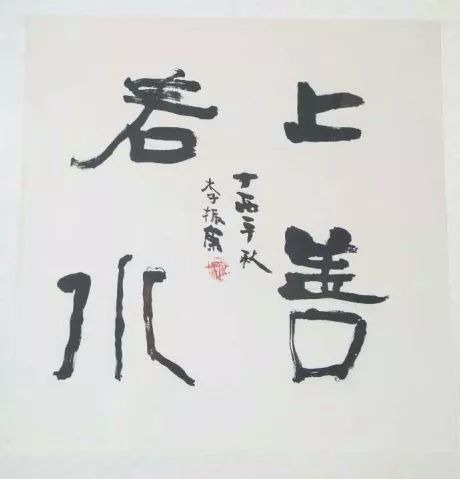 上善
若水
丁酉年秋
李振